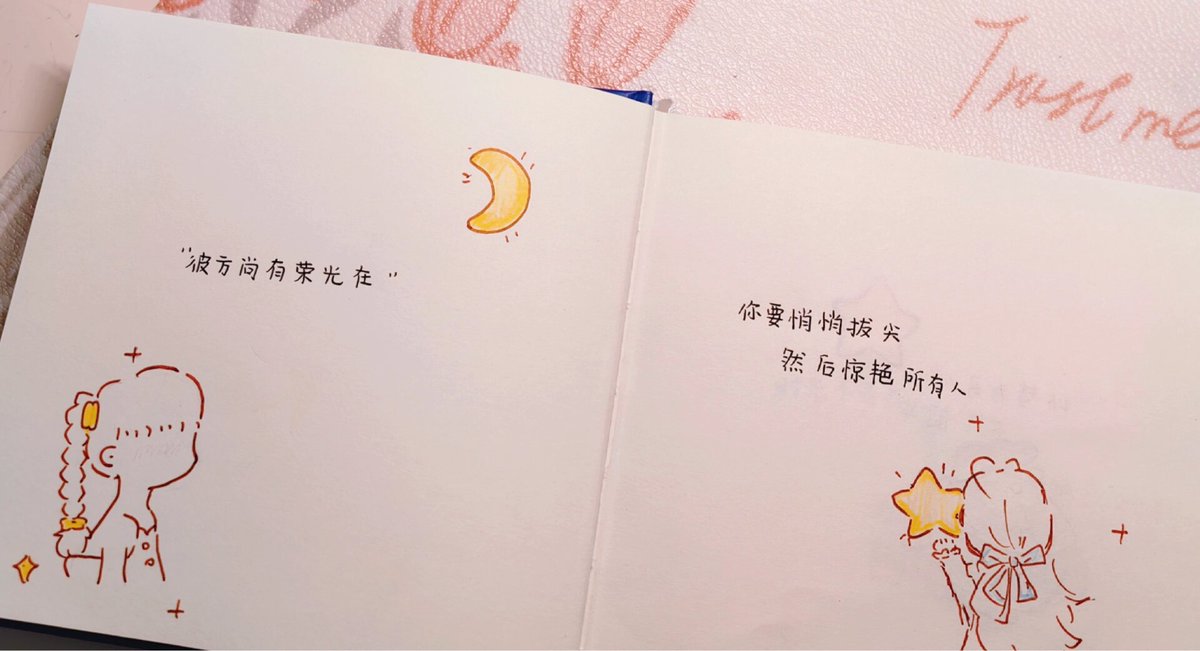 "彼方尚有荣光在"
你要悄悄拔尖
然后惊艳所有人
Trust me